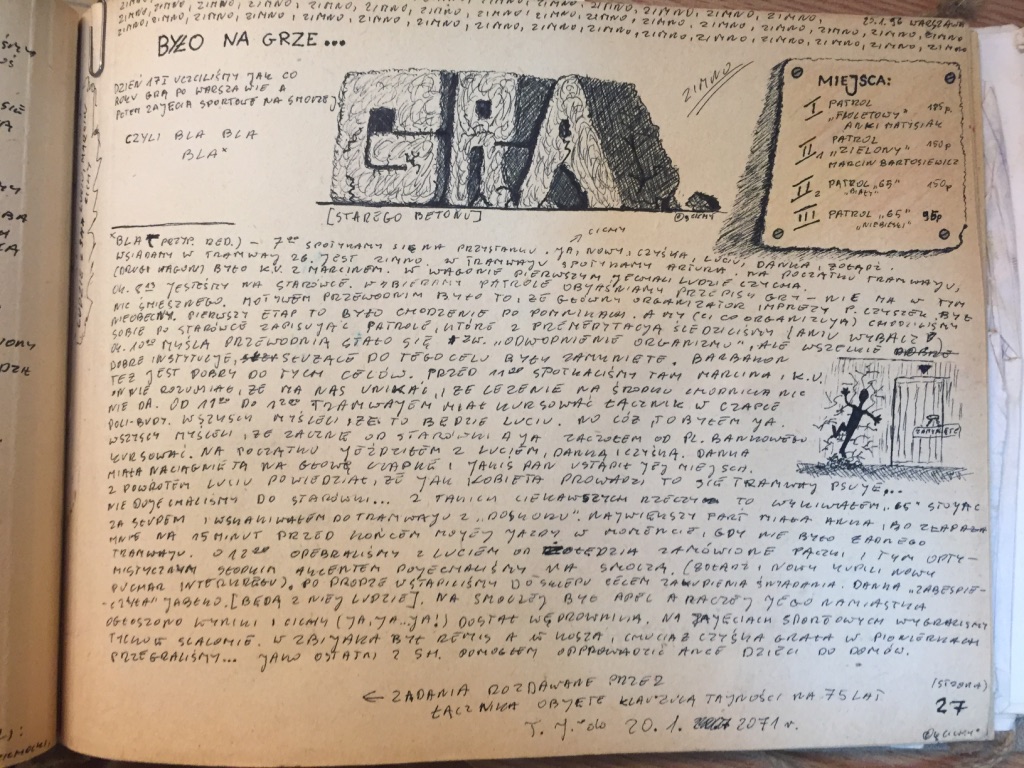 ZIMNO, ZIMNO, ZIMNO, ZIMNO, ZIMNO, ZIMNO, ZIMNO, ZIMNO,
ZIMNO, ZIMNO, ZIMNO, ZIMNO, ZIMNO, ZIMNO, ZIMNO, ZIMNO,
WARSZAWA
BYŁO NA GRZE...
DZIEŃ 17I UCZCILIŚMY JAK CO
ROKU GRĄ PO WARSZAWIE A
POTEM ZAJĘCIA SPORTOWE NA SMOCZEJ
CZYLI BLA BLA
BLA*
GRA
[STAREGO BETONU]
ZIMNO
MIEJSCA:
I PATROL 185p.
„FIOLETOWY"
ANKI MATISIAK
II1 PATROL
„ZIELONY" 150p
MARCIN BARTOSIEWICZ
II2 PATROL „65" 150p
„BIAŁY"
III PATROL „65" 95p
„NIEBIESKI"
CICHY
*BLA (PRZYP. RED.) – 7 SPOTYKAMY SIĘ NA PRZYSTANKU. JA, NOWY, CZYŚKA, LUCIU, DANKA, ŻOŁĄDŹ.
WSIADAMY W TRAMWAJ 26. JEST ZIMNO. W TRAMWAJU SPOTYKAMY ARTURA. NA POCZĄTKU TRAMWAJU,
(DRUGI WAGON) BYŁO K.V. Z MARCINEM. W WAGONIE PIERWSZYM JECHALI LUDZIE CZYCHA.
OK. JESTEŚMY NA STARÓWCE. WYBIERAMY PATROLE OBJAŚNIAMY PRZEPISY GRY – NIE MA W TYM
NIC ŚMIESZNEGO. MOTYWEM PRZEWODNIM BYŁO TO, ŻE GŁÓWNY ORGANIZATOR IMPREZY P. CZYSZEK BYŁ
NIEOBECNY. PIERWSZY ETAP TO BYŁO CHODZENIE PO POMNIKACH. A MY (CI CO ORGANIZUJĄ) CHODZILIŚMY
SOBIE PO STARÓWCE ZAPISUJĄC PATROLE, KTÓRE Z PREMEDYTACJĄ ŚLEDZILIŚMY (ANIU WYBACZ!)
OK. 10 MYŚLĄ PRZEWODNIĄ STAŁO SIĘ TZW. „ODWODNIENIE ORGANIZMU", ALE WSZELKIE
DOBRE INSTYTUCJE, SŁUŻĄCE DO TEGO CELU BYŁY ZAMKNIĘTE. BARBAKAN
TEŻ JEST DOBRY DO TYCH CELÓW. PRZED 11 SPOTKALIŚMY TAM MARCINA, K.V.
ON NIE ROZUMIAŁ, ŻE MA NAS UNIKAĆ, I ŻE LEŻENIE NA ŚRODKU CHODNIKA NIC
NIE DA. OD 11 DO 12 TRAMWAJEM MIAŁ KURSOWAĆ ŁĄCZNIK W CZAPCE
POLI-BUDY. WSZYSCY MYŚLELI, ŻE TO BĘDZIE LUCIU. NO CÓŻ TO BYŁEM JA.
WSZYSCY MYŚLELI, ŻE ZACZNĘ OD STARÓWKI A JA ZACZĄŁEM OD PL. BANKOWEGO
KURSOWAĆ. NA POCZĄTKU JEŹDZIŁEM Z LUCIEM, DANKĄ I CZYŚKĄ. DANKA
MIAŁA NACIĄGNIĘTĄ NA GŁOWĘ CZAPKĘ I JAKIŚ PAN USTĄPIŁ JEJ MIEJSCA.
Z POWROTEM LUCIU POWIEDZIAŁ, ŻE JAK KOBIETA PROWADZI TO SIĘ TRAMWAJ PSUJE...
NIE DOJECHALIŚMY DO STARÓWKI... Z TAKICH CIEKAWSZYCH RZECZY TO WYKIWAŁEM „65" STOJĄC
ZA SŁUPEM I WSKAKIWAŁEM DO TRAMWAJU Z „DOSKOKU". NAJWIĘKSZY FART MIAŁA ANKA, BO ZŁAPAŁA
MNIE NA 15 MINUT PRZED KOŃCEM MOJEJ JAZDY W MOMENCIE, GDY NIE BYŁO ŻADNEGO
TRAMWAJU. O 12 ODEBRALIŚMY Z LUCIEM OD ŻOŁĘDZIA ZAMÓWIONE PĄCZKI I TYM OPTY-
MISTYCZNYM SŁODKIM AKCENTEM POJECHALIŚMY NA SMOCZĄ. (ŻOŁĄDŹ I NOWY KUPILI NOWY
PUCHAR INTERKRĘGU). PO DRODZE WSTĄPILIŚMY DO SKLEPU CELEM ZAKUPIENIA ŚNIADANIA. DANKA „ZABEZPIE-
-CZYŁA" JABŁKO. [BĘDĄ Z NIEJ LUDZIE]. NA SMOCZEJ BYŁ APEL A RACZEJ JEGO NAMIASTKA
OGŁOSZONO WYNIKI I CICHY (JA, JA..JA!) DOSTAŁ WĘDROWNIKA. NA ZAJĘCIACH SPORTOWYCH WYGRALIŚMY
TYLKO W SLALOMIE. W ZBIJAKA BYŁ REMIS A W KOSZA, CHOCIAŻ CZYŚKA GRAŁA W PIONIERKACH
PRZEGRALIŚMY... JAKO OSTATNI Z SM. POMOGŁEM ODPROWADZIĆ ANCE DZIECI DO DOMÓW.
← ZADANIA ROZDAWANE PRZEZ
ŁĄCZNIKA OBJĘTE KLAUZULĄ TAJNOŚCI NA 75 LAT
T. J. do 20.1. 2071 r.
(STRONA)
27